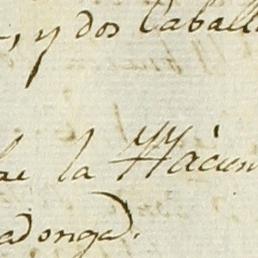 , y dos Caball
de la Hacien
adonga.